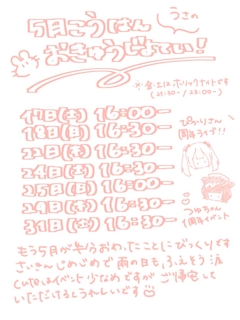 うさの
5月こうはん
おきゅうじよてい!
※金・土はホリックナイトです
(21:30-/22:00-)
17日(金) 16:00-
18日(月) 16:30-
22日(木) 16:30-
24日(土) 16:00-
25日(日) 16:00-
31日(土) 16:30-
ぴかりさん
周年ライブ!!
つゆちゃん
1周年イベント
もう5月が終りおわったことにびっくりです
さいきんじめじめで雨の日も、ふえそう 泣
cuteはイベント少なめですがご帰宅して
いただけるとうれしいです